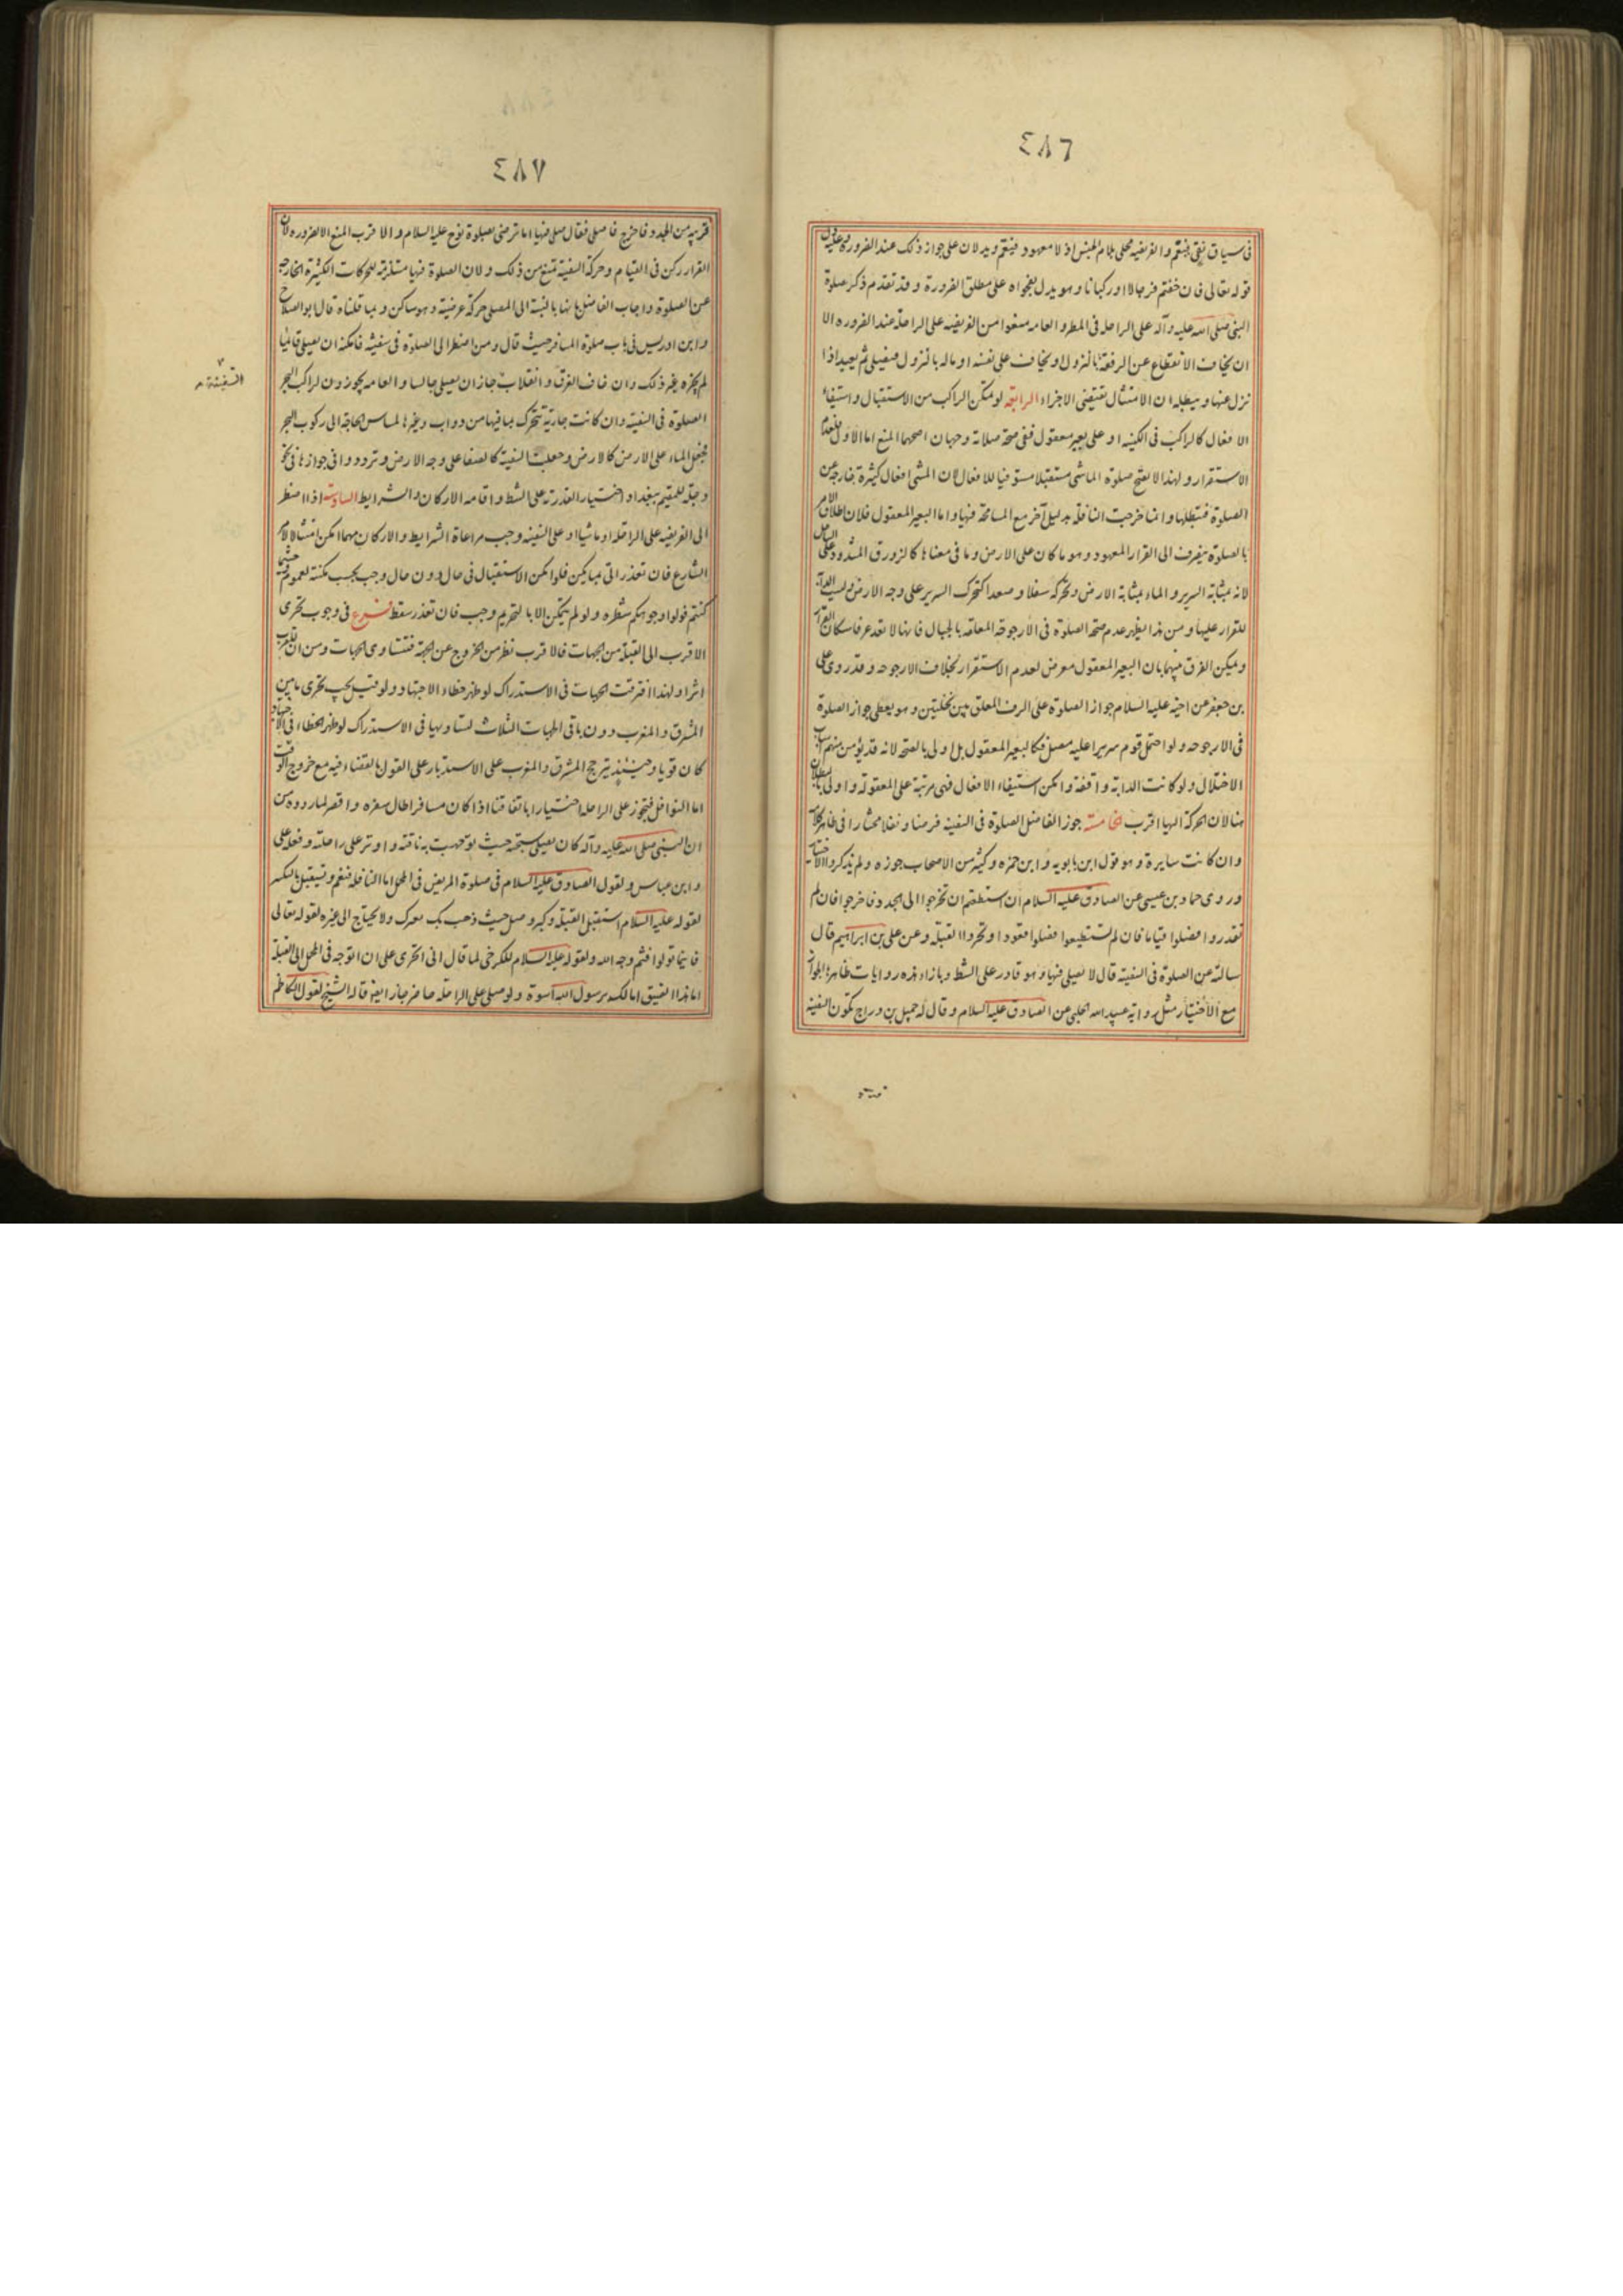 ٤٨٦
في سياق نفي فيعم والفريضه محلى بلام الجنس اذ لا معهود فيعم ويدلان على جواز ذلك عند الضروره وعليه دل
قوله تعالى فان خفتم فرجالا او ركبانا وهو يدل بفحواه على مطلق الضرورة وقد تقدم ذكر صلوة
النبي صلى الله عليه وآله على الراحله في المطر والعامه منعوا من الفريضه على الراحلة عند الضروره الا
ان يخاف الانقطاع عن الرفقة بالنزول او يخاف على نفسه او ماله بالنزول فيصلي ثم يعيد اذا
نزل عنها ويبطله ان الامتثال يقتضي الاجزاء الرابعة لو تمكن الراكب من الاستقبال واستيفاء
الافعال كالراكب في الكنيسه او على بعير معقول ففي صحة صلاته وجهان اصحهما المنع اما الاول فلعدم
الاستقرار ولهذا لا يصح صلوة الماشي مستقبلا مستوفيا للافعال لان المشي افعال كثيرة خارجة عن
الصلوة فتبطلها وانما خرجت النافلة بدليل آخر مع المسامحة فيها واما البعير المعقول فلان اطلاق الامر
بالصلوة ينصرف الى القرار المعهود وهو ما كان على الارض وما في معناها كالزورق المشدود على الساحل
لانه بمثابة السرير والماء بمثابة الارض وتحركه سفلا وصعدا كتحرك السرير على وجه الارض وليست الدابة
للقرار عليها ومن هذا يظهر عدم صحة الصلوة في الارجوحة المعلقة بالحبال فانها لا تعد عرفا مكان القرار
ويمكن الفرق بينهما بان البعير المعقول معرض لعدم الاستقرار بخلاف الارجوحه وقد روى علي
بن جعفر عن اخيه عليه السلام جواز الصلوة على الرف المعلق بين نخلتين وهو يعطي جواز الصلوة
في الارجوحه ولو احتمل قوم سريرا عليه مصل فكالبعير المعقول بل اولى بالصحة لانه قد يؤمن منهم اسباب
الاختلال ولو كانت الدابة واقفة وامكن استيفاء الافعال فهي مرتبة على المعقولة واولى بالبطلان
هنا لان الحركة اليها اقرب الخامسة جوز الفاضل الصلوة في السفينه فرضا ونفلا مختارا في ظاهر كلامه
وان كانت سايرة وهو قول ابن بابويه وابن حمزه وكثير من الاصحاب جوزه ولم يذكروا الاختيار
وروى حماد بن عيسى عن الصادق عليه السلام ان استطعتم ان تخرجوا الى الجدد فاخرجوا فان لم
تقدروا فصلوا قياما فان لم تستطيعوا فصلوا قعودا وتحروا القبلة وعن علي بن ابراهيم قال
سالته عن الصلوة في السفينه قال لا يصلي فيها وهو قادر على الشط وبازاء هذه روايات ظاهرها الجواز
مع الاختيار مثل رواية عبيد الله الحلبي عن الصادق عليه السلام وقال له جميل بن دراج تكون السفينه
قريبة
٤٨٧
قريبه من الجدد فاخرج فاصلي فقال صلي فيها اما ترضى بصلوة نوح عليه السلام والاقرب المنع الا لضروره لان
القرار ركن في القيام وحركة السفينة تمنع من ذلك ولان الصلوة فيها مستلزمة للحركات الكثيرة الخارجة
عن الصلوة واجاب الفاضل بانها بالنسبة الى المصلي حركة عرضية وهو ساكن وبما قلناه قال ابو الصلاح
وابن ادريس في باب صلوة المسافر حيث قال ومن اضطر الى الصلوة في سفينة فامكنه ان يصلي قائما
لم يجزه غير ذلك وان خاف الغرق وانقلاب جاز ان يصلي جالسا والعامه يجوزون لراكب البحر
السفينة
الصلوة في السفينة وان كانت جارية تتحرك بما فيها من دواب وغيرها لمساس الحاجة الى ركوب البحر
فجعل الماء على الارض كالارض وجعلت السفينة كالصفاء على وجه الارض وترددوا في جوازها في نحو
دجلة للمقيم ببغداد اختيار القدرته على الشط واقامة الاركان والشرايط السادسة اذا اضطر
الى الفريضه على الراحله او ماشيا او على السفينه وجب مراعاة الشرايط والاركان مهما امكن امتثالا لامر
الشارع فان تعذر اتى بما يمكن فلو امكن الاستقبال في حال دون حال وجب بحسب مكنته لعموم حيثما
كنتم فولوا وجوهكم شطره ولو لم يتمكن الا بالتحريم وجب فان تعذر سقط فرع في وجوب تحرى
الاقرب الى القبلة من الجهات فالاقرب نظر من الخروج عن الجهة فتتساوى الجهات ومن ان للقرب
اثرا ولهذا افترقت الجهات في الاستدراك لو ظهر خطاء الاجتهاد ولو قيل يجب تحرى ما بين
المشرق والمغرب دون باقي الجهات الثلاث لتساويها في الاستدراك لو ظهر الخطاء في الاجتهاد
كان قويا وحينئذ يترجح المشرق والمغرب على الاستدبار على القول بالقضاء فيه مع خروج الوقت
اما النوافل فتجوز على الراحله اختيارا باتفاقنا اذا كان مسافرا طال سفره او قصر لما رووه من
ان النبي صلى الله عليه وآله كان يصلي سبحته حيث توجهت به ناقته واوتر على راحلته وفعله علي
وابن عباس ولقول الصادق عليه السلام في صلوة المريض في المحمل اما النافلة فنعم ويستقبل بالتكبير
لقوله عليه السلام استقبل القبلة وكبر وصل حيث ذهب بك بعيرك ولا يحتاج الى غيره لقوله تعالى
فاينما تولوا فثم وجه الله ولقوله عليه السلام للكرخي لما قال اني اتحرى على ان اتوجه في المحمل الى القبلة
اما هذا الضيق اما لك برسول الله اسوة ولو صلى على الراحلة حاضر جاز ايضا قاله الشيخ لقول الكاظم